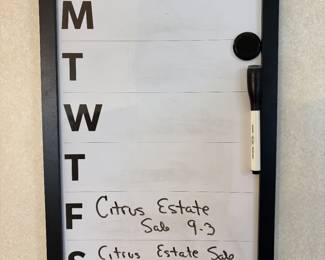 M
T
W
T
F Citrus Estate
Sale 9-3
S Citrus Estate Sale